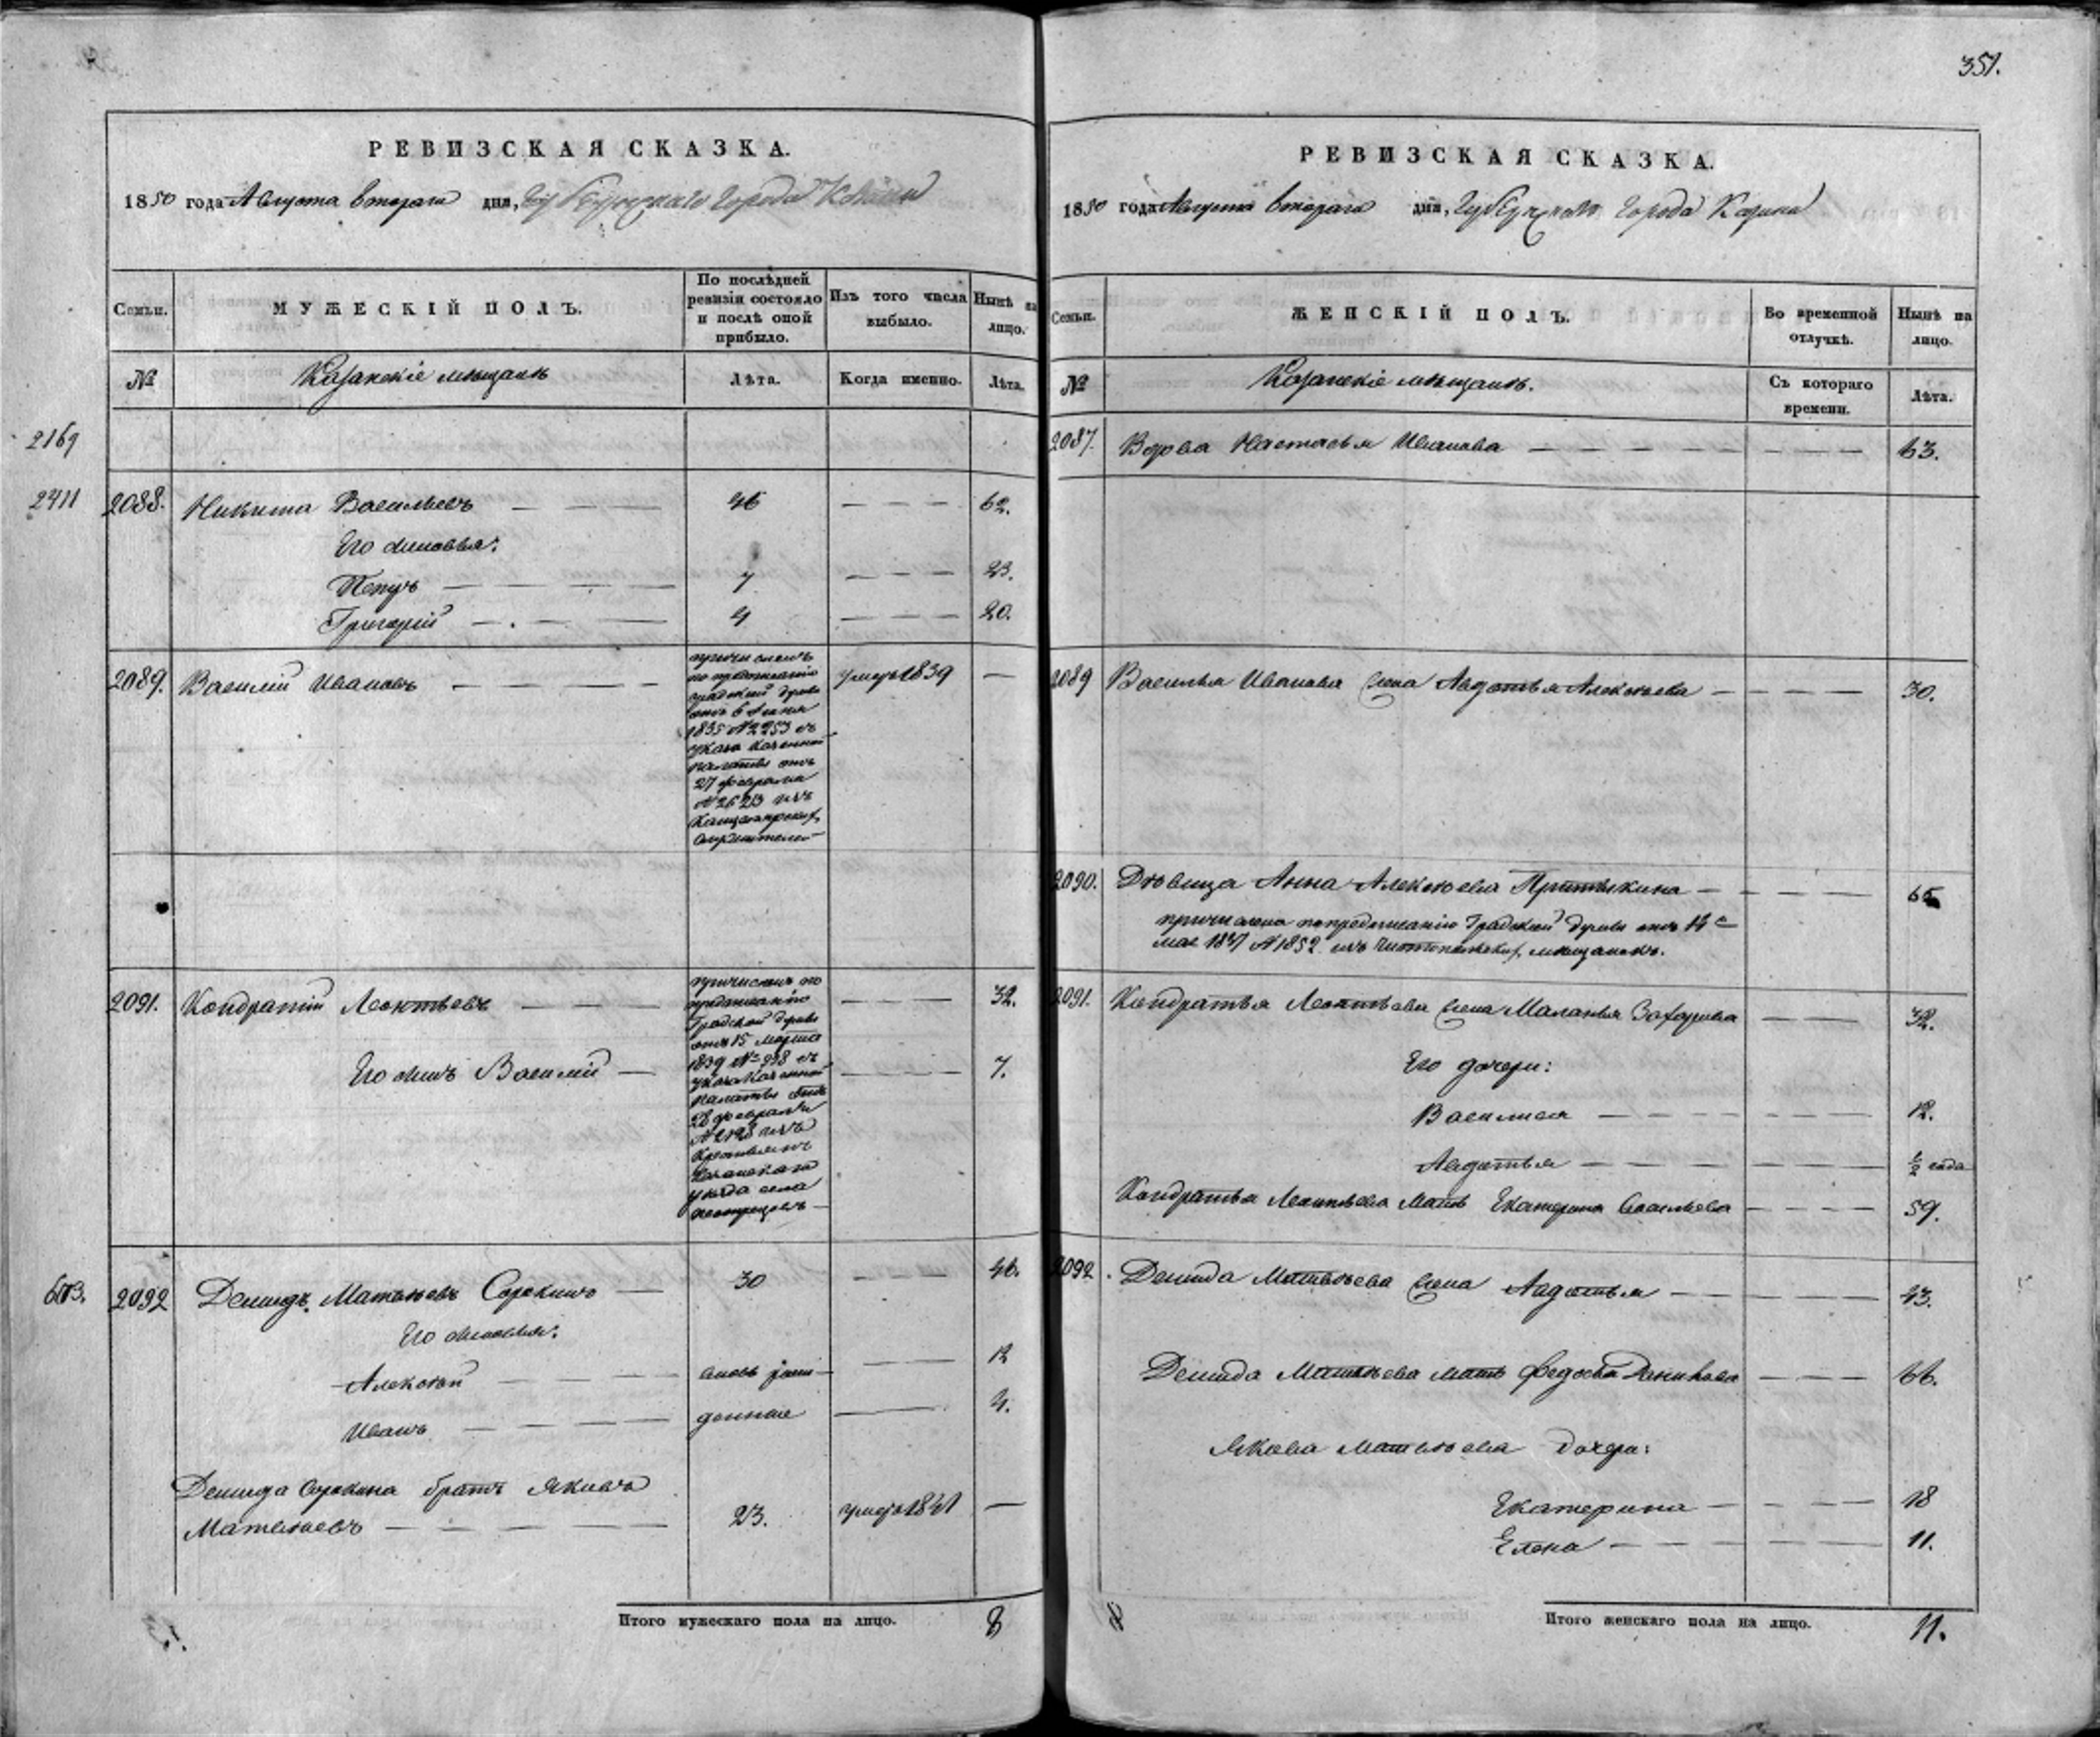 351.
РЕВИЗСКАЯ СКАЗКА.
1850 года Августа втораго дня, Губернскаго города Казани
Семьи.
МУЖЕСКІЙ ПОЛЪ.
По послѣдней ревизіи состояло и послѣ оной прибыло.
Изъ того числа выбыло.
Нынѣ на лицо.
№
Казанскіе мѣщане
Лѣта.
Когда именно.
Лѣта.
2169
2411 2088. Никита Васильевъ — — 46 — — — 62.
Его сыновья:
Петръ — — — 7 — — — 23.
Григорій — — — 4 — — — 20.
2089. Василій Ивановъ — — — умеръ 1839 —
причисленъ
по предписанію
градской думы
отъ 6 Апреля
1835 № 2253 съ
указа казенной
палаты отъ
27 февраля
№ 26213 изъ
Канцелярскихъ
служителей
2091. Кондратій Леонтьевъ — — — — — 32.
Его сынъ Василій — — — — 7.
причисленъ по
предписанію
Градской думы
отъ 15 Марта
1839 № 938 съ
указа Казенной
палаты отъ
28 февраля
№ 2128 изъ
Крестьянъ
Казанскаго
уѣзда села
673. 2092 Демидъ Матвѣевъ Сорокинъ — 30 — — — 46.
Его сыновья:
Алексѣй — — — вновь рож- — 12
Иванъ — — — денные — 4.
Демида Сорокина братъ Яковъ
Матвѣевъ — — — — 23. умеръ 1841 —
Итого мужескаго пола на лицо. 8
РЕВИЗСКАЯ СКАЗКА.
1850 года Августа втораго дня, Губернскаго города Казани
Семьи.
ЖЕНСКІЙ ПОЛЪ.
Во временной отлучкѣ.
Нынѣ на лицо.
№
Казанскіе мѣщане.
Съ котораго времени.
Лѣта.
2087. Вдова Настасья Иванова — — — — 63.
2089 Василья Иванова жена Авдотья Алексѣева — — — — 30.
2090. Дѣвица Анна Алексѣева Притыкина — — — — 65
причислена по предписанію Градской думы отъ 14
мая 1837 № 1852 изъ Чистопольскихъ мѣщанокъ.
2091. Кондратья Леонтьева жена Маланья Захарова — — — 32.
Его дочери:
Василиса — — — — 12.
Авдотья — — — — 1/2 года
Кондратья Леонтьева мать Екатерина Васильева — — — — 59.
2092. Демида Матвѣева жена Авдотья — — — — 43.
Демида Матвѣева мать Федосья — — — 66.
Якова Матвѣева дочери:
Екатерина — — — — 18
Елена — — — — 11.
Итого женскаго пола на лицо. 11.